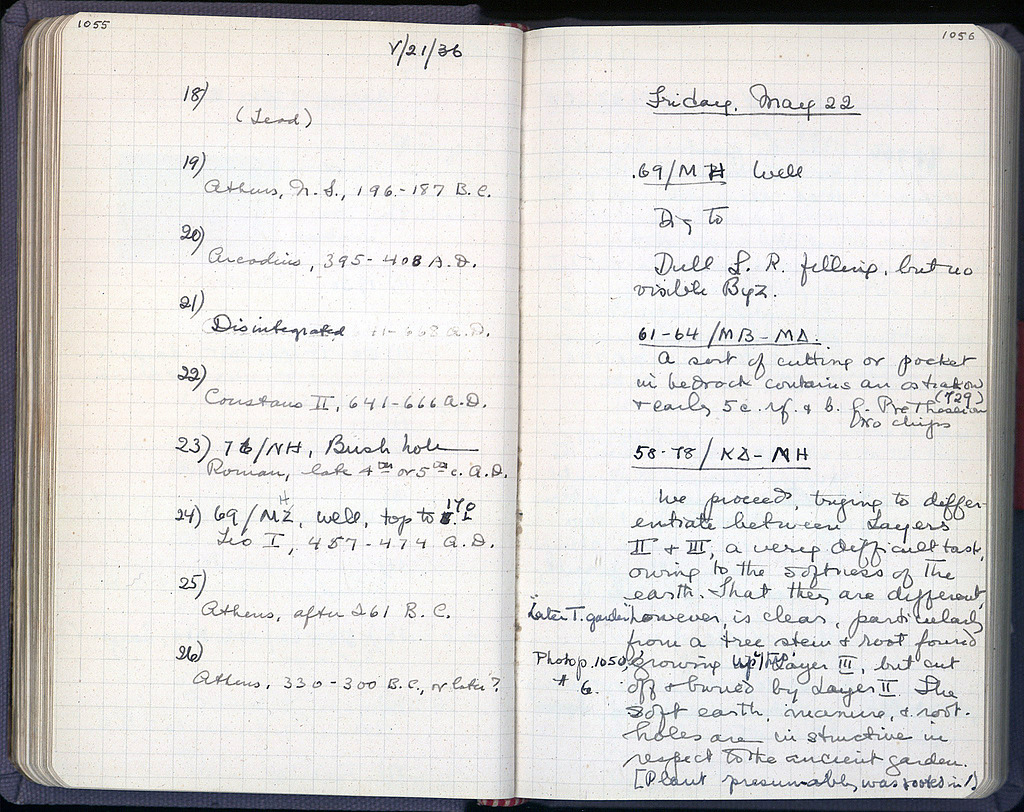 1055
V/21/36
18)
(Lead)
19)
Athens, N. S., 196-187 B.C.
20)
Arcadius, 395-408 A.D.
21)
Disintegrated 668 A.D.
22)
Constans II, 641-666 A.D.
23) 76/NH, Bush hole
Roman, late 4th or 5th c. A.D.
H
24) 69/MZ, well, top to 170
Leo I, 457-474 A.D.
25)
Athens, after 261 B.C.
26)
Athens, 330-300 B.C., or later?
1056
Friday, May 22
69/MH Well
Dig to
Dull L. R. filling, but no
visible Byz.
61-64/MB-MΔ.
A sort of cutting or pocket
in bedrock contains an ostrakon
(729)
& early 5 c. r.f. & b. f. Pre Thosleion
Two chips
58-78/KΔ-NH
We proceed, trying to differ-
entiate between Layers
II & III, a very difficult task,
owing to the softness of the
earth. That they are different,
Later T. garden however, is clear, particularly
from a tree stem & root found
Photo p. 1050, growing up Layer III, but cut
# 6. off & buried by Layer II. The
soft earth, manure, & root-
holes are instructive in
respect to the ancient garden.
[Plant presumably was rooted in